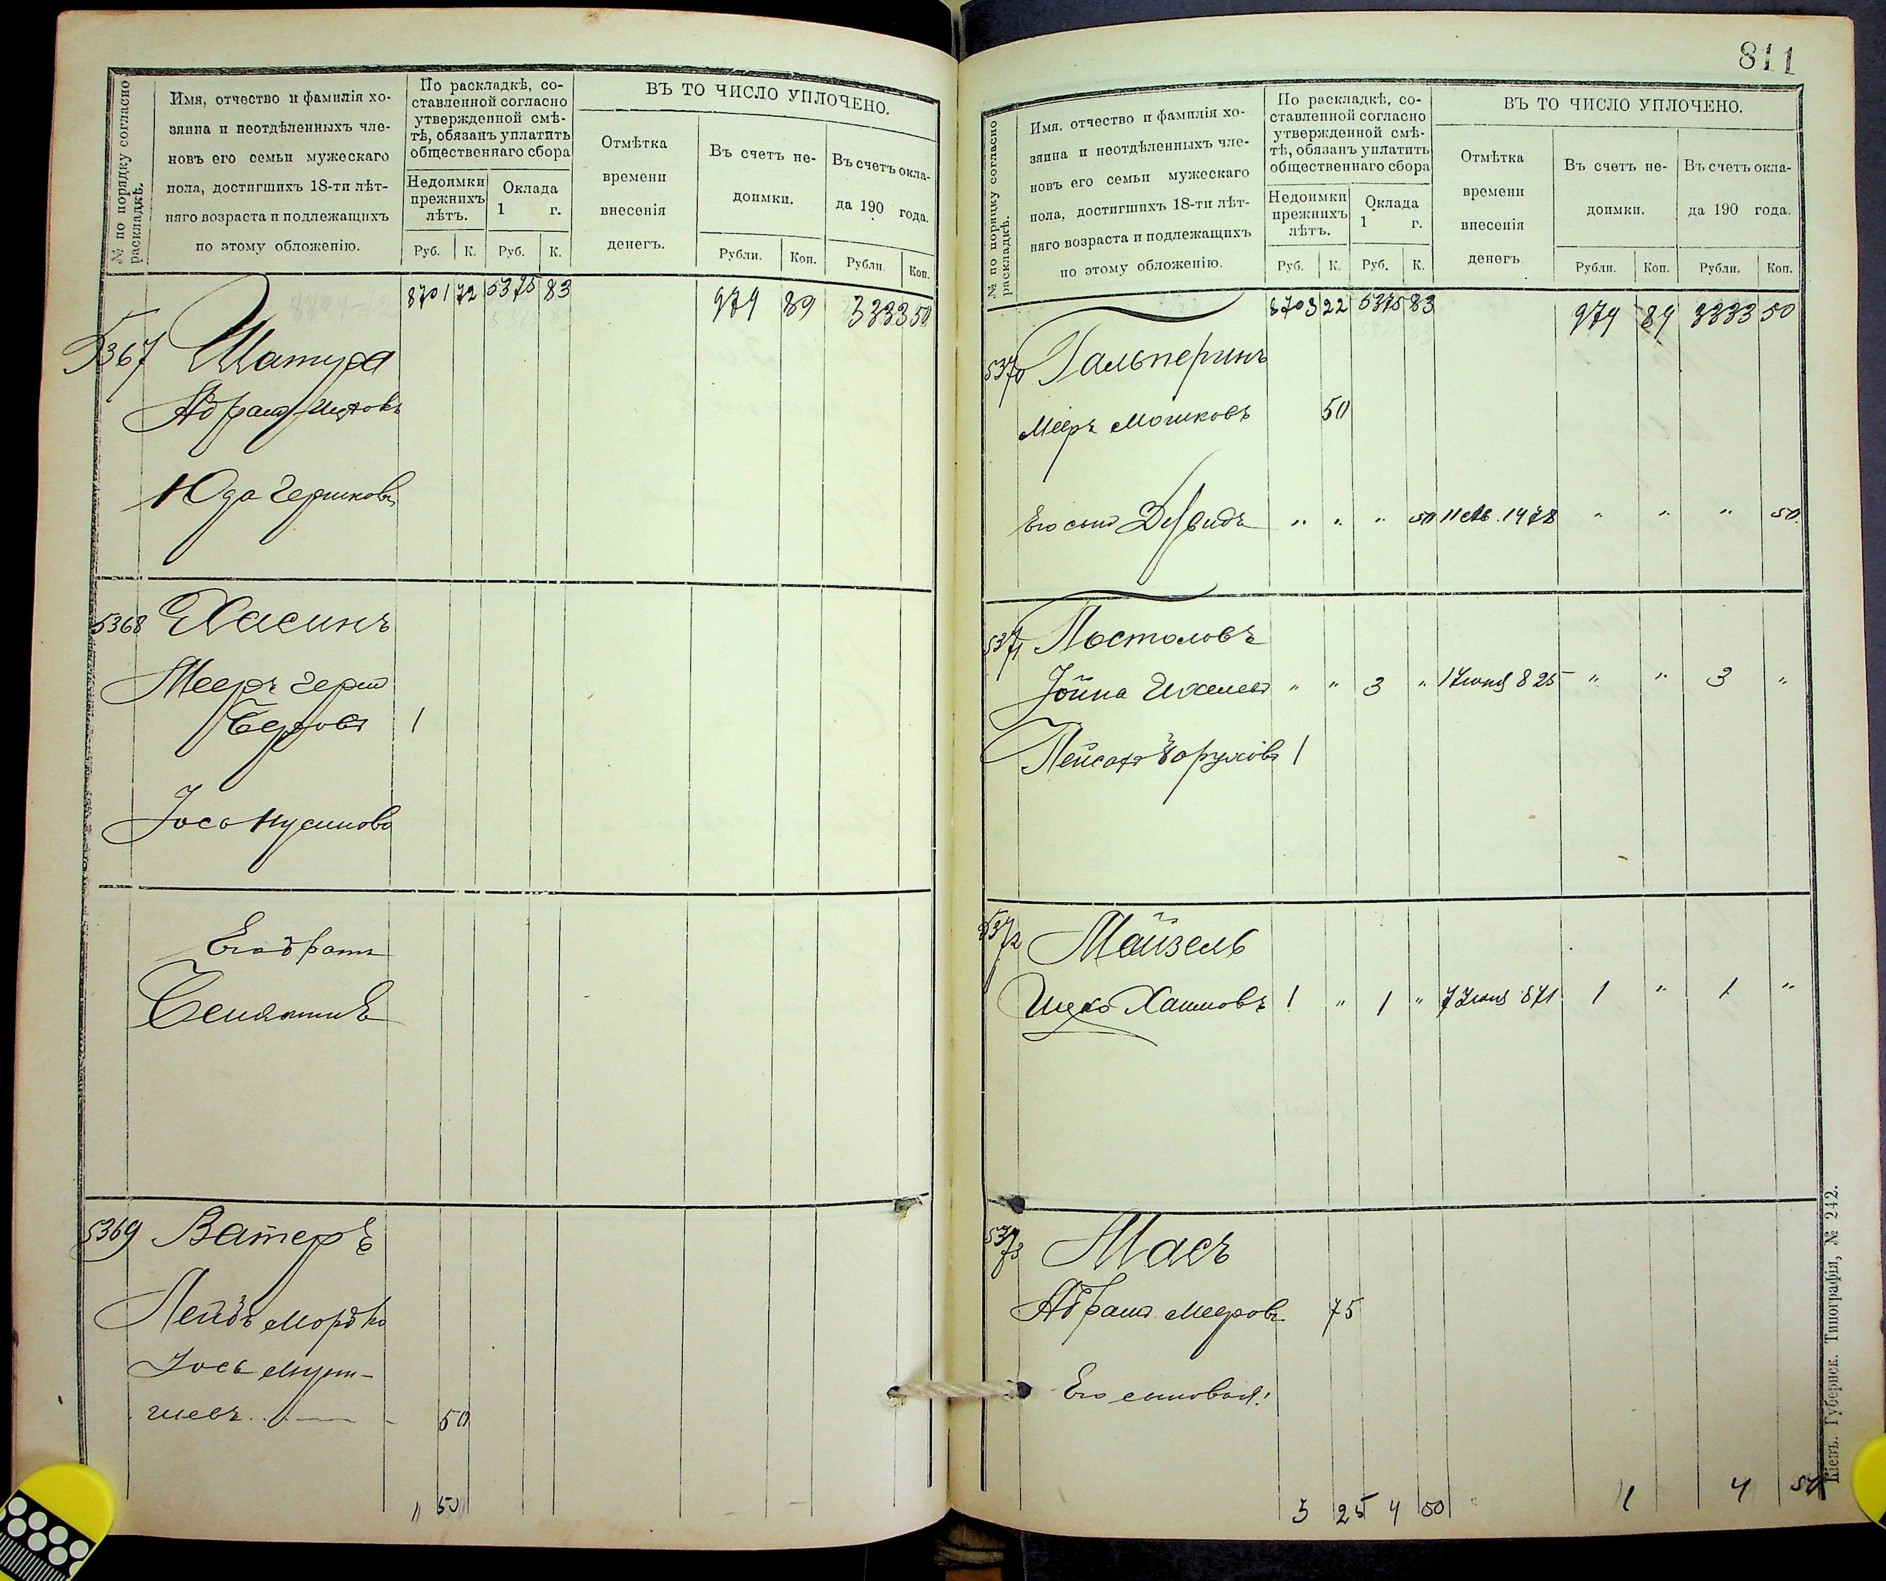 № по порядку согласно раскладкѣ.
Имя, отчество и фамилія хо-
зяина и неотдѣленныхъ чле-
новъ его семьи мужескаго
пола, достигшихъ 18-ти лѣт-
няго возраста и подлежащихъ
по этому обложенію.
По раскладкѣ, со-
ставленной согласно
утвержденной смѣ-
тѣ, обязанъ уплатить
общественнаго сбора
Недоимки
прежнихъ
лѣтъ.
Оклада
1 г.
Руб. К. Руб. К.
ВЪ ТО ЧИСЛО УПЛОЧЕНО.
Отмѣтка
времени
внесенія
денегъ.
Въ счетъ не-
доимки.
Въ счетъ окла-
да 190 года.
Рубли. Коп. Рубли. Коп.
8701 72 5375 83 979 89 3333 50
5367
Абрамъ Ицковъ
Юда Гершковъ
5368 Хасинъ
Мееръ Герш
Берковъ 1
Іось Нусимовъ
Его братъ
Бенямин
5369 Ватеръ
Лейбъ Мордко
Іось
50
" 50
811
№ по порядку согласно раскладкѣ.
Имя, отчество и фамилія хо-
зяина и неотдѣленныхъ чле-
новъ его семьи мужескаго
пола, достигшихъ 18-ти лѣт-
няго возраста и подлежащихъ
по этому обложенію.
По раскладкѣ, со-
ставленной согласно
утвержденной смѣ-
тѣ, обязанъ уплатить
общественнаго сбора
Недоимки
прежнихъ
лѣтъ.
Оклада
1 г.
Руб. К. Руб. К.
ВЪ ТО ЧИСЛО УПЛОЧЕНО.
Отмѣтка
времени
внесенія
денегъ.
Въ счетъ не-
доимки.
Въ счетъ окла-
да 190 года.
Рубли. Коп. Рубли. Коп.
8703 22 5375 83 979 89 3333 50
5370 Гальперинъ
Мееръ Мошковъ 50
Его сынъ Давидъ " " " 50 11 1478 " " " 50
5371 Постоловъ
Іойна " " 3 " 1 Іюня 825 " " 3 "
Пейсахъ 1
5372 Майзель
Ицко Хаимовъ 1 " 1 " 7 Іюня 871 1 " 1 "
5373 Масъ
Абрамъ Мееровъ 75
Его сыновья:
3 25 4 50 1 4 50
Кіевъ. Губернск. Типографія, № 242.